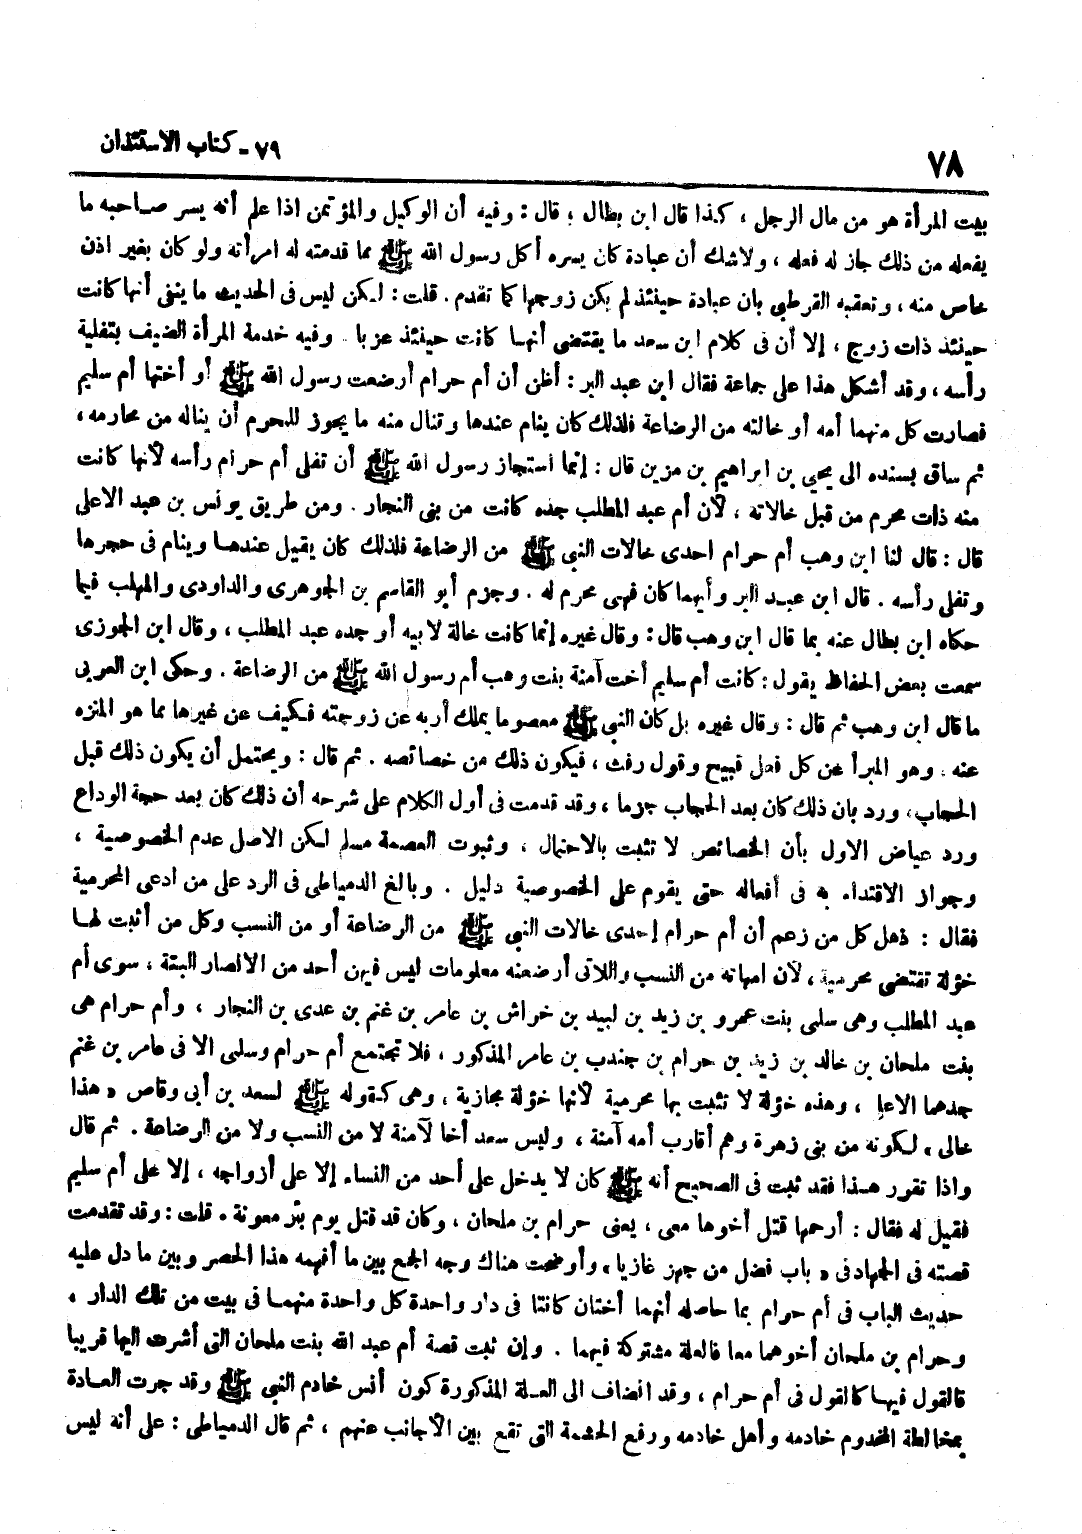 ٧٨
٧٩ - كتاب الاستئذان
بيت المرأة هو من مال الرجل ، كذا قال ابن بطال ؛ قال : وفيه أن الوكيل والمؤتمن اذا علم أنه يسر صاحبه ما
يفعله من ذلك جاز له فعله ، ولاشك أن عبادة كان يسره أكل رسول الله ﷺ مما قدمته له امرأته ولو كان بغير اذن
خاص منه ، وتعقبه القرطبي بان عبادة حينئذ لم يكن زوجها كما تقدم . قلت : لكن ليس فى الحديث ما ينفى أنها كانت
حينئذ ذات زوج ، إلا أن فى كلام ابن سعد ما يقتضى أنها كانت حينئذ عزبا . وفيه خدمة المرأة الضيف بتفلية
رأسه ، وقد أشكل هذا على جماعة فقال ابن عبد البر : أظن أن أم حرام أرضعت رسول الله ﷺ أو أختها أم سليم
فصارت كل منهما أمه أو خالته من الرضاعة فلذلك كان ينام عندها وتنال منه ما يجوز للمحرم أن يناله من محارمه ،
ثم ساق بسنده الى يحيى بن ابراهيم بن مزين قال : إنما استجاز رسول الله ﷺ أن تفلى أم حرام رأسه لأنها كانت
منه ذات محرم من قبل خالاته ، لأن أم عبد المطلب جده كانت من بنى النجار . ومن طريق يونس بن عبد الاعلى
قال : قال لنا ابن وهب أم حرام احدى خالات النبي ﷺ من الرضاعة فلذلك كان يقيل عندها وينام فى حجرها
وتفلى رأسه . قال ابن عبد البر وأيهما كان فهى محرم له . وجزم أبو القاسم بن الجوهرى والداودى والمهلب فيما
حكاه ابن بطال عنه بما قال ابن وهب قال : وقال غيره إنما كانت خالة لابيه أو جده عبد المطلب ، وقال ابن الجوزى
سمعت بعض الحفاظ يقول : كانت أم سليم أخت آمنة بنت وهب أم رسول الله ﷺ من الرضاعة . وحكى ابن العربى
ما قال ابن وهب ثم قال : وقال غيره بل كان النبى ﷺ معصوما يملك أربه عن زوجته فكيف عن غيرها مما هو المنزه
عنه ، وهو المبرأ عن كل فعل قبيح وقول رفث ، فيكون ذلك من خصائصه . ثم قال : ويحتمل أن يكون ذلك قبل
الحجاب ، ورد بان ذلك كان بعد الحجاب جزما ، وقد قدمت فى أول الكلام على شرحه أن ذلك كان بعد حجة الوداع
ورد عياض الاول بأن الخصائص لا تثبت بالاحتمال ، وثبوت العصمة مسلم لكن الاصل عدم الخصوصية ،
وجواز الاقتداء به فى أفعاله حتى يقوم على الخصوصية دليل . وبالغ الدمياطى فى الرد على من ادعى المحرمية
فقال : ذهل كل من زعم أن أم حرام إحدى خالات النبى ﷺ من الرضاعة أو من النسب وكل من أثبت لها
خؤلة تقتضى محرمية ، لأن امهاته من النسب واللاتى أرضعنه معلومات ليس فيهن أحد من الانصار البتة ، سوى أم
عبد المطلب وهى سلمى بنت عمرو بن زيد بن لبيد بن خراش بن عامر بن غنم بن عدى بن النجار ، وأم حرام هى
بنت ملحان بن خالد بن زيد بن حرام بن جندب بن عامر المذكور ، فلا تجتمع أم حرام وسلمى الا فى عامر بن غنم
جدهما الاعلى ، وهذه خؤلة لا تثبت بها محرمية لأنها خؤلة مجازية ، وهى كقوله ﷺ لسعد بن أبى وقاص « هذا
خالى » لكونه من بنى زهرة وهم أقارب أمه آمنة ، وليس سعد أخا لآمنة لا من النسب ولا من الرضاعة . ثم قال
واذا تقرر هذا فقد ثبت فى الصحيح أنه ﷺ كان لا يدخل على أحد من النساء إلا على أزواجه ، إلا على أم سليم
فقيل له فقال : أرحمها قتل أخوها معى ، يعنى حرام بن ملحان ، وكان قد قتل يوم بئر معونة . قلت : وقد تقدمت
قصته فى الجهاد فى « باب فضل من جهز غازيا » وأوضحت هناك وجه الجمع بين ما أفهمه هذا الحصر وبين ما دل عليه
حديث الباب فى أم حرام بما حاصله أنهما أختان كانتا فى دار واحدة كل واحدة منهما فى بيت من تلك الدار ،
وحرام بن ملحان أخوهما معا فالعلة مشتركة فيهما . وإن ثبت قصة أم عبد الله بنت ملحان التى أشرت اليها قريبا
فالقول فيها كالقول فى أم حرام ، وقد انضاف الى العلة المذكورة كون أنس خادم النبى ﷺ وقد جرت العادة
بمخالطة المخدوم خادمه وأهل خادمه ورفع الحشمة التى تقع بين الأجانب عنهم ، ثم قال الدمياطى : على أنه ليس